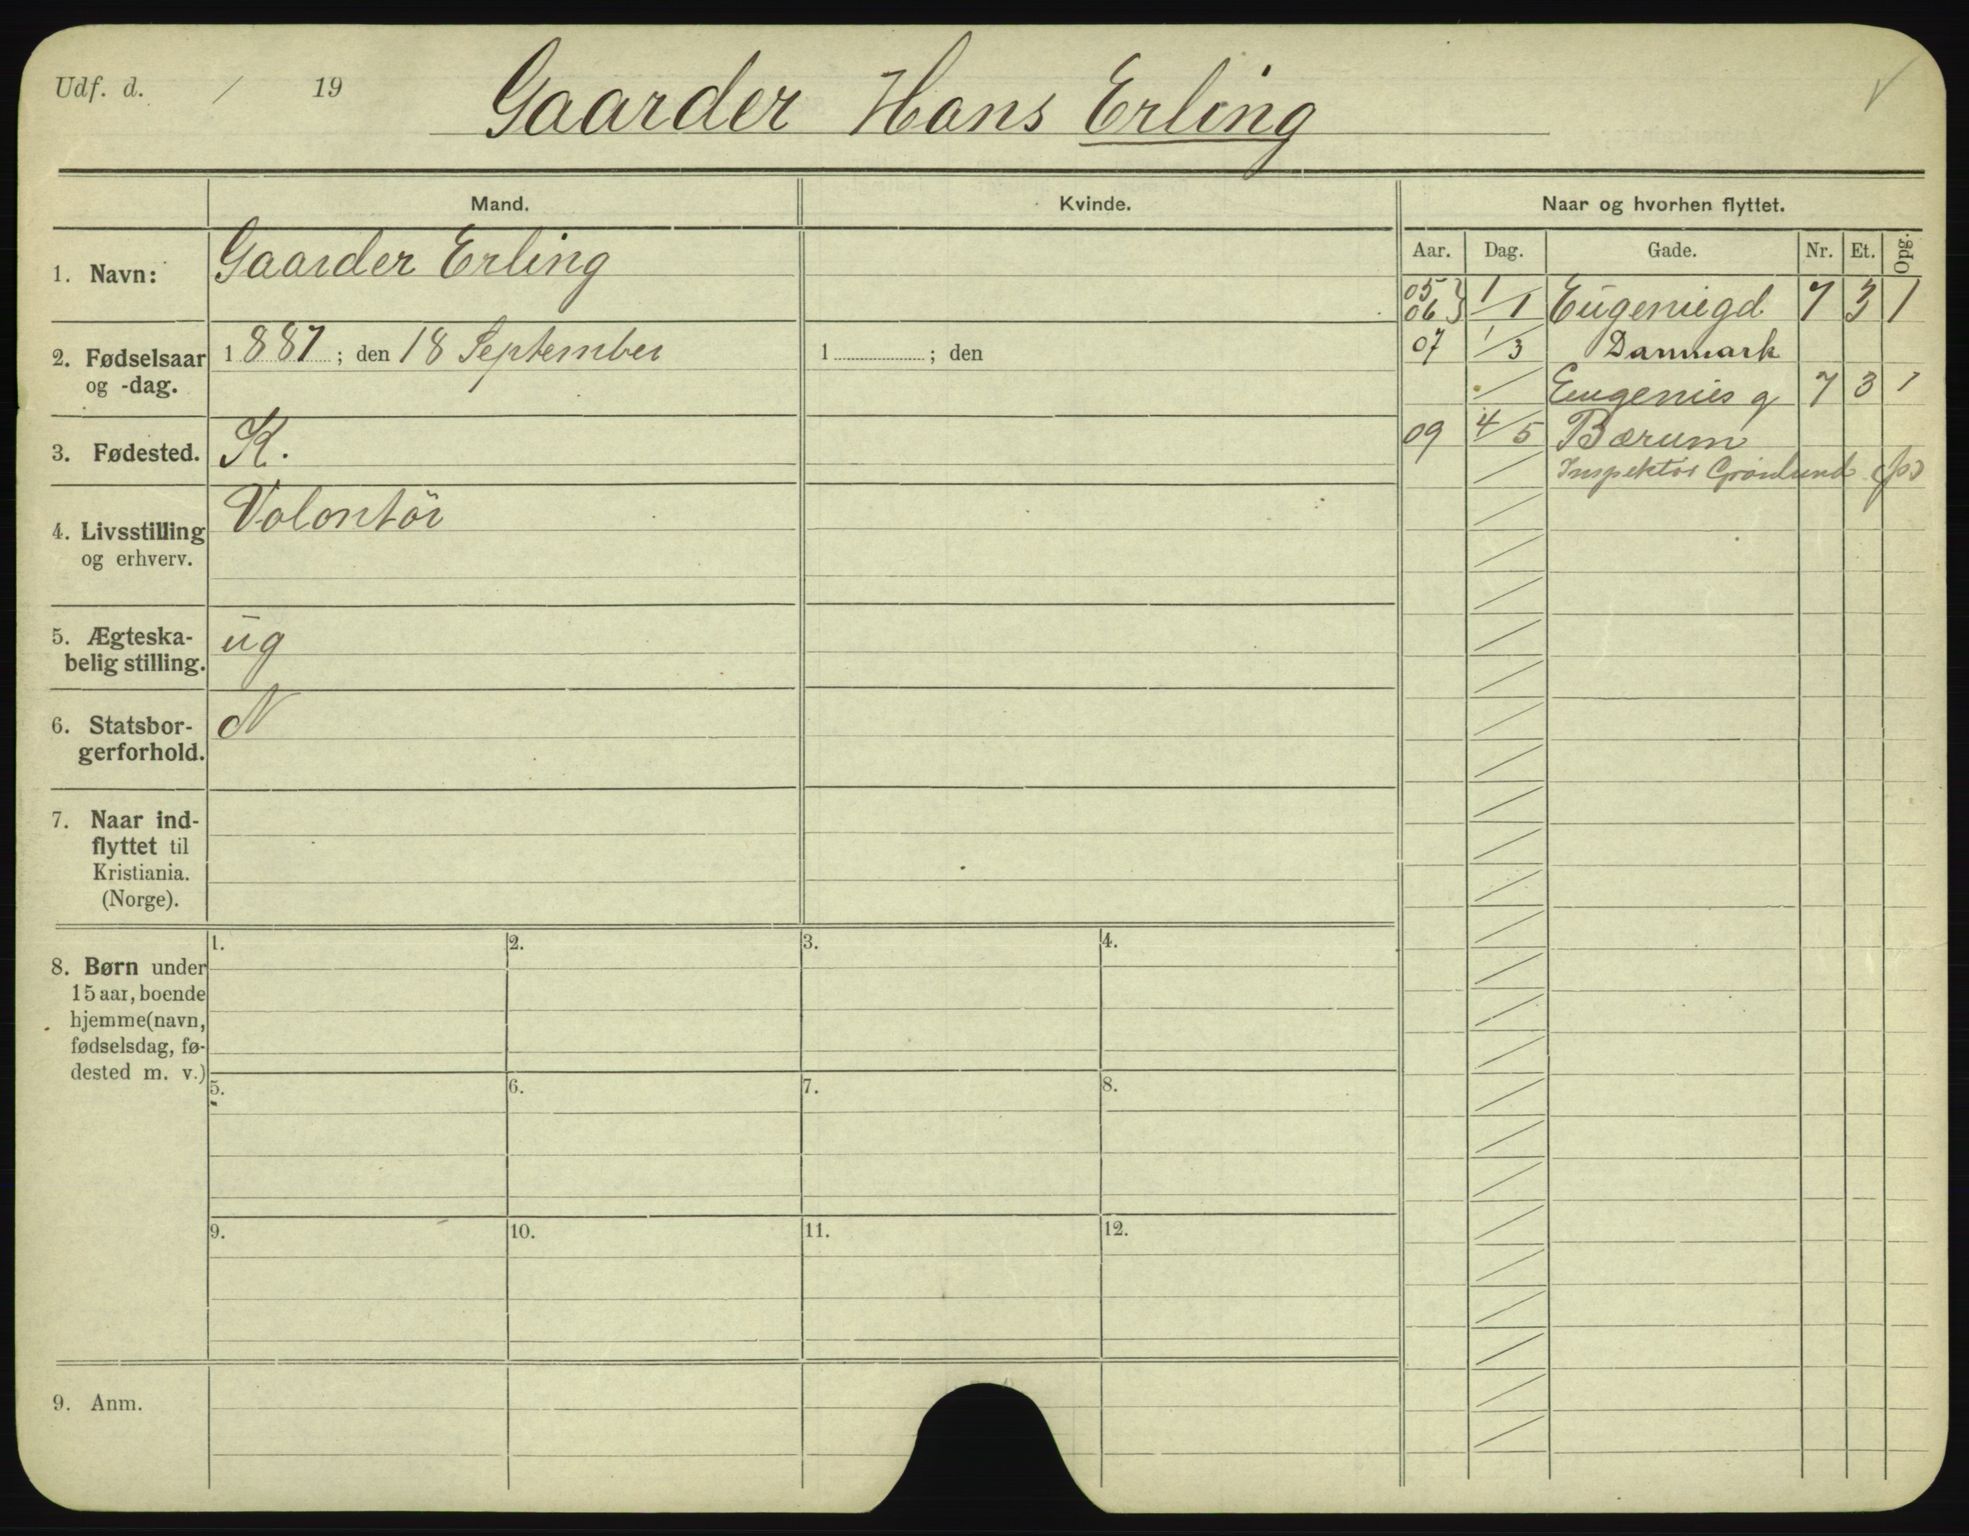 Udf. d. / 19
Gaarder Hans Erling
Mand.
Kvinde.
Naar og hvorhen flyttet.
Aar. Dag. Gade. Nr. Et. Opg.
1. Navn: Gaarder Erling
05 } 1/1 Eugeniegd 7 3 1
06 }
2. Fødselsaar og -dag. 1887; den 18 September
1 ; den
07 1/3 Danmark
/ Eugenies g 7 3 1
3. Fødested. K.
09 4/5 Bærum
Inspektør Grønlund
4. Livsstilling og erhverv. Volontör
5. Ægteska-
belig stilling. ug
6. Statsbor-
gerforhold. N
7. Naar ind-
flyttet til
Kristiania.
(Norge).
8. Børn under
15 aar, boende
hjemme (navn,
fødselsdag, fø-
dested m. v.)
1. 2. 3. 4.
5. 6. 7. 8.
9. 10. 11. 12.
9. Anm.